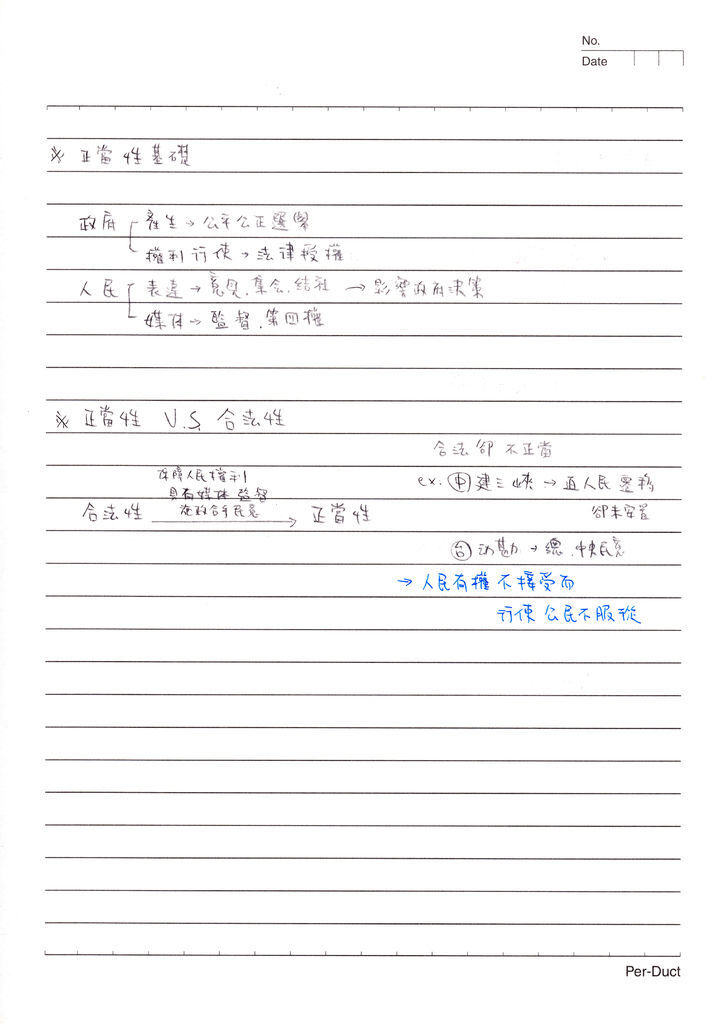 No.
Date
※ 正當性基礎
政府 產生→公平公正選舉
權利行使→法律授權
人民 表達→意見.集會.結社 →影響政府決策
媒体→監督.第四權
※ 正當性 V.S. 合法性
合法卻不正當
保障人民權利
具有媒体監督
施政合乎民意
合法性 → 正當性
ex. 中 建三峽→ 人民
卻未安置
台 动勘→總.中央民意
→人民有權不接受而
行使公民不服從
Per-Duct